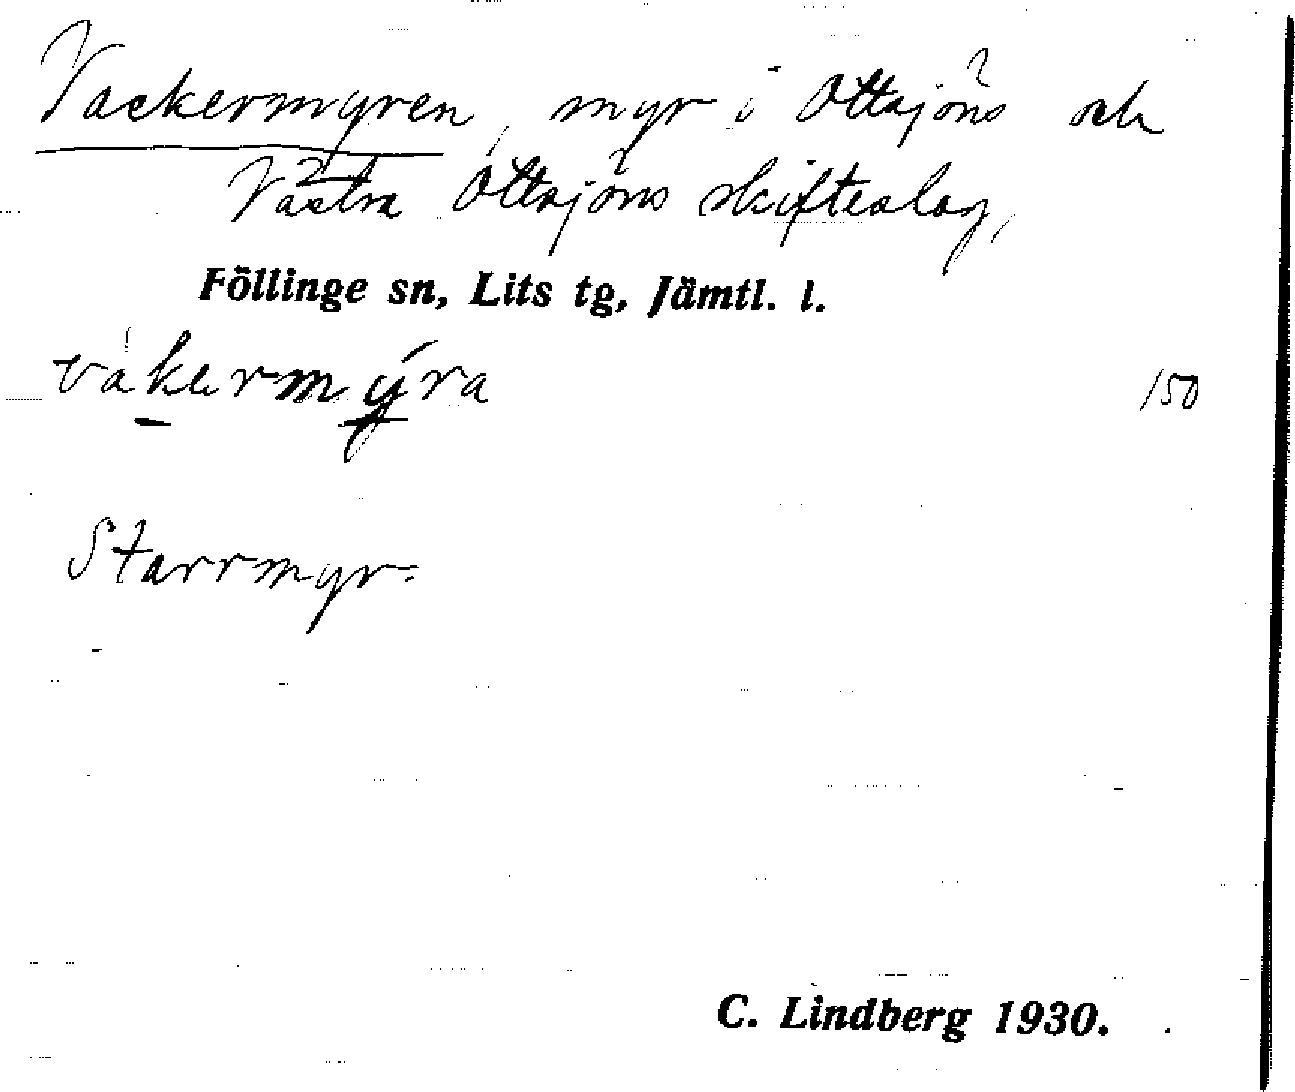 Vackermyren, myr i Ottsjöns och
Västra Ottsjöns skifteslag,
Föllinge sn, Lits tg, Jämtl. l.
vàkermýra
150
Starrmyr.
C. Lindberg 1930.